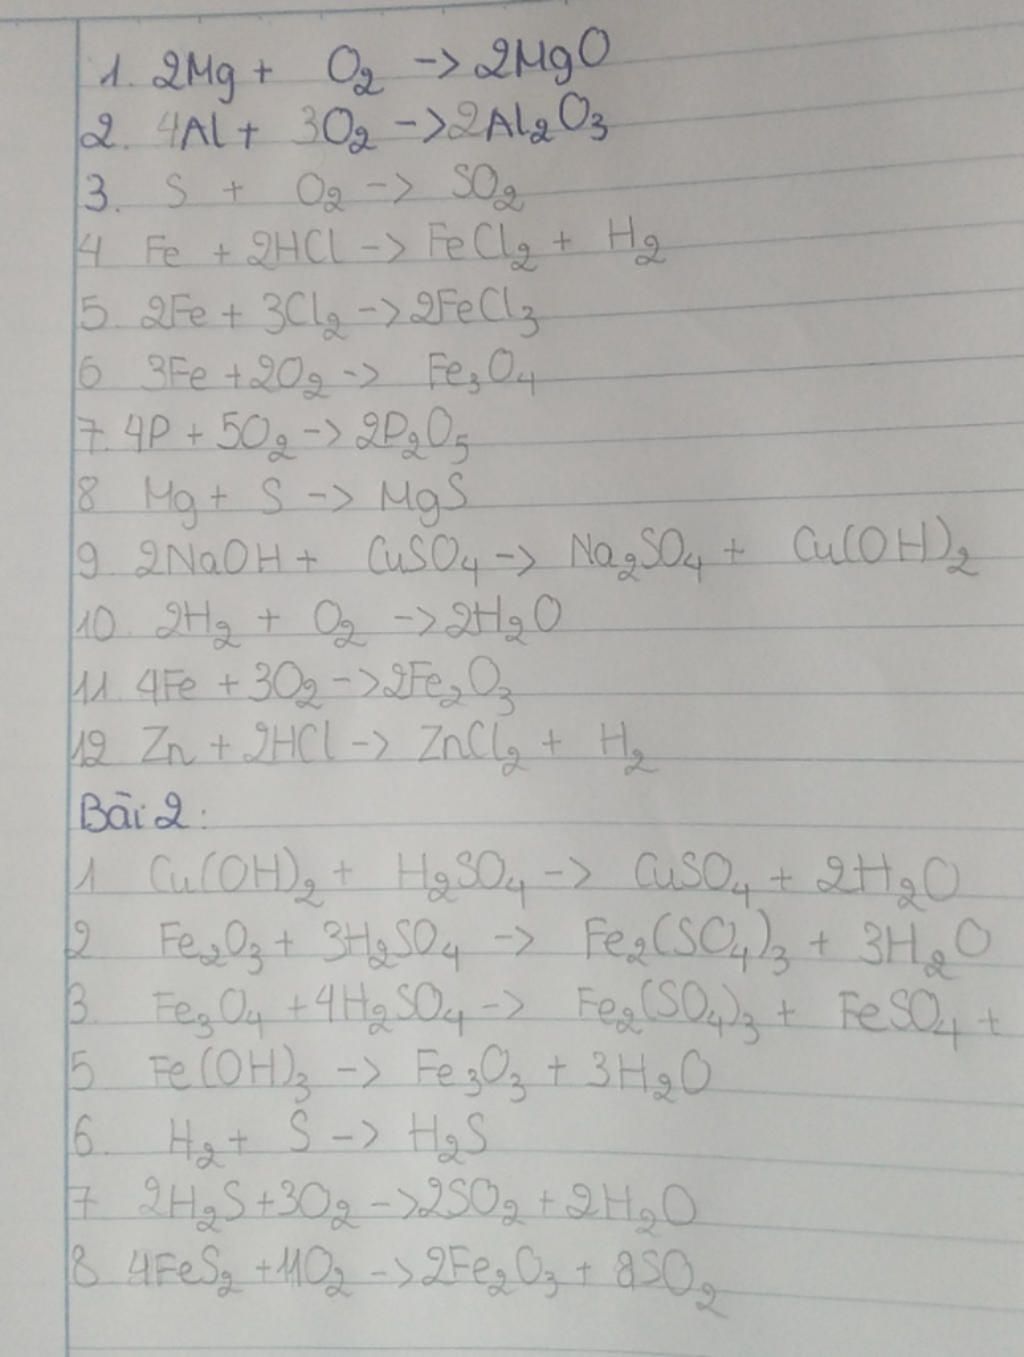 1. 2Mg + O₂ -> 2MgO
2. 4Al + 3O₂ -> 2Al₂O₃
3. S + O₂ -> SO₂
4 Fe + 2HCl -> FeCl₂ + H₂
5. 2Fe + 3Cl₂ -> 2FeCl₃
6 3Fe + 2O₂ -> Fe₃O₄
7. 4P + 5O₂ -> 2P₂O₅
8 Mg + S -> MgS
9 2NaOH + CuSO₄ -> Na₂SO₄ + Cu(OH)₂
10. 2H₂ + O₂ -> 2H₂O
11. 4Fe + 3O₂ -> 2Fe₂O₃
12 Zn + 2HCl -> ZnCl₂ + H₂
Bài 2:
1 Cu(OH)₂ + H₂SO₄ -> CuSO₄ + 2H₂O
2 Fe₂O₃ + 3H₂SO₄ -> Fe₂(SO₄)₃ + 3H₂O
3. Fe₃O₄ + 4H₂SO₄ -> Fe₂(SO₄)₃ + FeSO₄ +
5 Fe(OH)₃ -> Fe₃O₃ + 3H₂O
6. H₂ + S -> H₂S
7 2H₂S + 3O₂ -> 2SO₂ + 2H₂O
8 4FeS₂ + 11O₂ -> 2Fe₂O₃ + 8SO₂